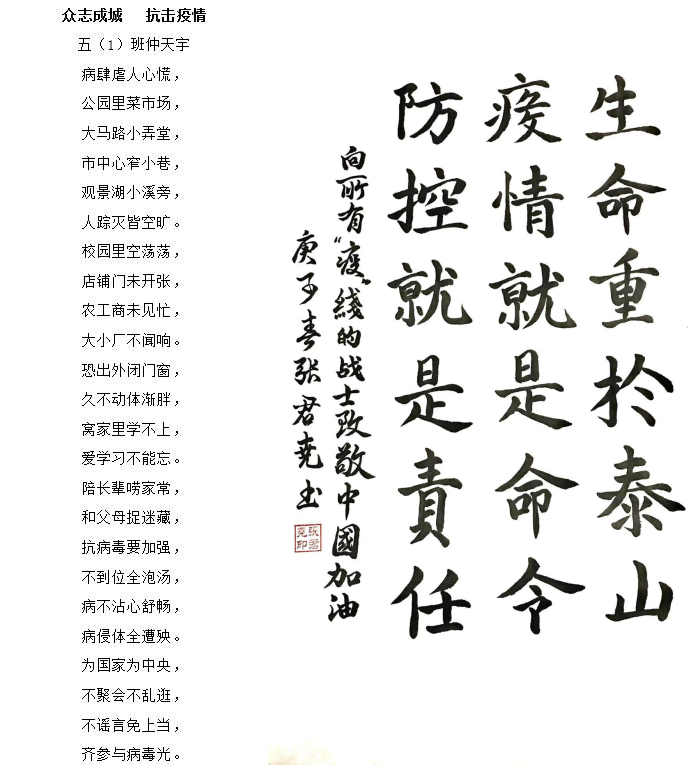 众志成城 抗击疫情
五（1）班仲天宇
病肆虐人心慌，
公园里菜市场，
大马路小弄堂，
市中心窄小巷，
观景湖小溪旁，
人踪灭皆空旷。
校园里空荡荡，
店铺门未开张，
农工商未见忙，
大小厂不闻响。
恐出外闭门窗，
久不动体渐胖，
窝家里学不上，
爱学习不能忘。
陪长辈唠家常，
和父母捉迷藏，
抗病毒要加强，
不到位全泡汤，
病不沾心舒畅，
病侵体全遭殃。
为国家为中央，
不聚会不乱逛，
不谣言免上当，
齐参与病毒光。
生命重於泰山
疫情就是命令
防控就是責任
向所有“疫”綫的战士致敬中國加油
庚子春张君尧书
张君尧印